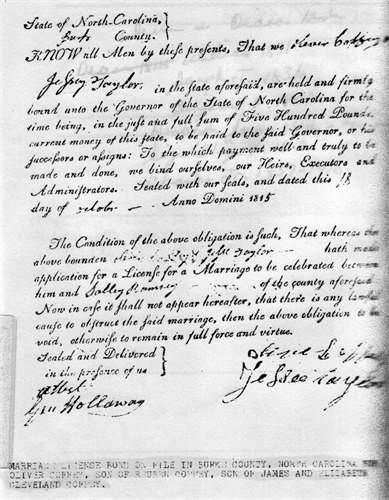 State of North-Carolina,
Burke County.
KNOW all Men by these presents, That we Oliver Coffey
Jesse Taylor in the state aforesaid, are held and firmly
bound unto the Governor of the State of North Carolina for the
time being, in the just and full Sum of Five Hundred Pounds
current money of this state, to be paid to the said Governor, or his
successors or assigns: To the which payment well and truly to be
made and done, we bind ourselves, our Heirs, Executors and
Administrators. Sealed with our seals, and dated this 18
day of october Anno Domini 1815
The Condition of the above obligation is such, That whereas the
above bounden Taylor hath made
application for a License for a Marriage to be celebrated between
him and Salley Ramsey of the county aforesaid
Now in case it shall not appear hereafter, that there is any lawful
cause to obstruct the said marriage, then the above obligation to be
void, otherwise to remain in full force and virtue.
Sealed and Delivered
in the presence of us
Holloway
MARRIAGE LICENSE BOND ON FILE IN BURKE COUNTY, NORTH CAROLINA
OLIVER COFFEY, SON OF REUBEN COFFEY, SON OF JAMES AND ELIZABETH
CLEVELAND COFFEY.